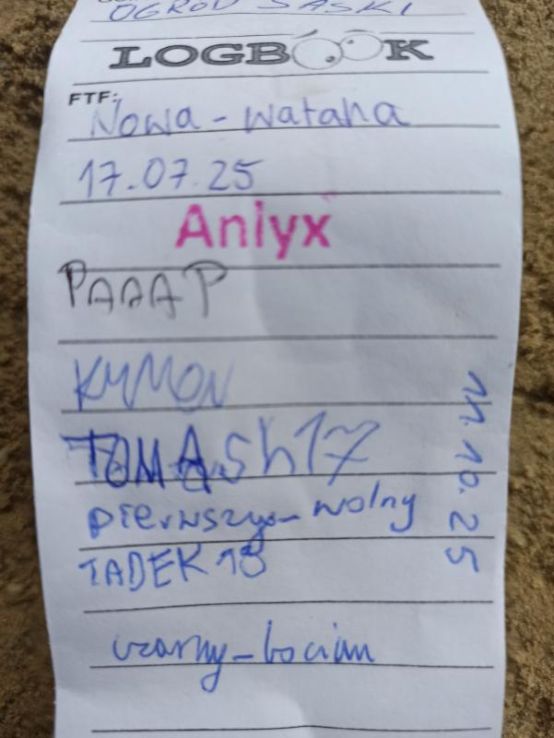 OGRÓD SASKI
LOGBOOK
FTF:
Nowa-wataha
17.07.25
Anlyx
PAAAP
KYMON
TOMASh17
pierwszy_wolny
TADEK 18
11.10.25
czarny_bocian